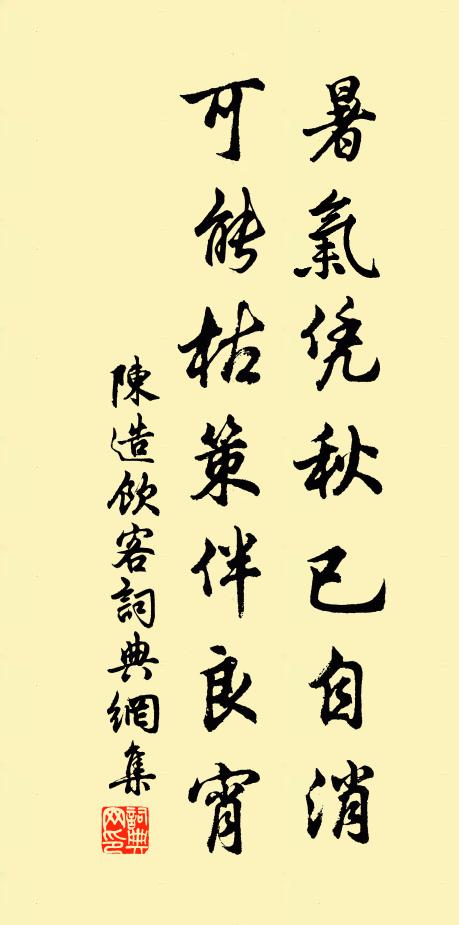 暑氣凭秋已自消
可能枯策伴良宵
陳造飲客詞典網集
詞典网印